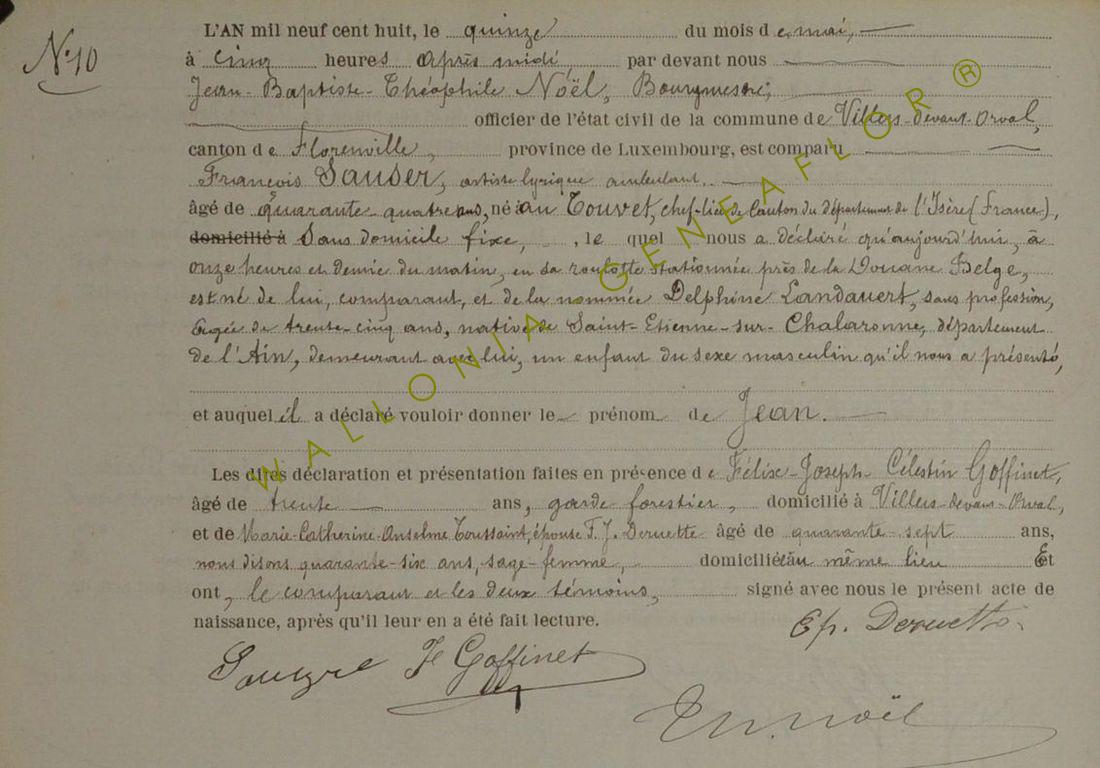 N° 10
L'AN mil neuf cent huit, le quinze du mois de mai,
à cinq heures après midi, par devant nous
Jean-Baptiste-Théophile Noël, Bourgmestre,
officier de l'état civil de la commune de Villers-devant-Orval,
canton de Florenville, province de Luxembourg, est comparu
François Sauser, artiste lyrique ambulant,
âgé de quarante-quatre ans, né au Touvet, chef-lieu de Canton du département de l'Isère (France),
domicilié à Sans domicile fixe, , le quel nous a déclaré qu'aujourd'hui, à
onze heures et demie du matin, en sa roulotte stationnée près de la Douane Belge,
est né de lui, comparant, et de la nommée Delphine Landauert, sans profession,
âgée de trente-cinq ans, native de Saint-Etienne-sur-Chalaronne, département
de l'Ain, demeurant avec lui, un enfant du sexe masculin qu'il nous a présenté,
et auquel il a déclaré vouloir donner le prénom de Jean.
Les dites déclaration et présentation faites en présence de Félix-Joseph-Célestin Goffinet,
âgé de trente ans, garde forestier, domicilié à Villers-devant-Orval,
et de Marie-Catherine-Anselme Toussaint, épouse F. J. Deruette âgé de quarante-sept ans,
nous disons quarante-six ans, sage-femme, domiciliée au même lieu Et
ont, le comparant et les deux témoins, signé avec nous le présent acte de
naissance, après qu'il leur en a été fait lecture.
Ep. Deruette
Goffinet
Noël
WALLONIA-GENEAFLOR ®